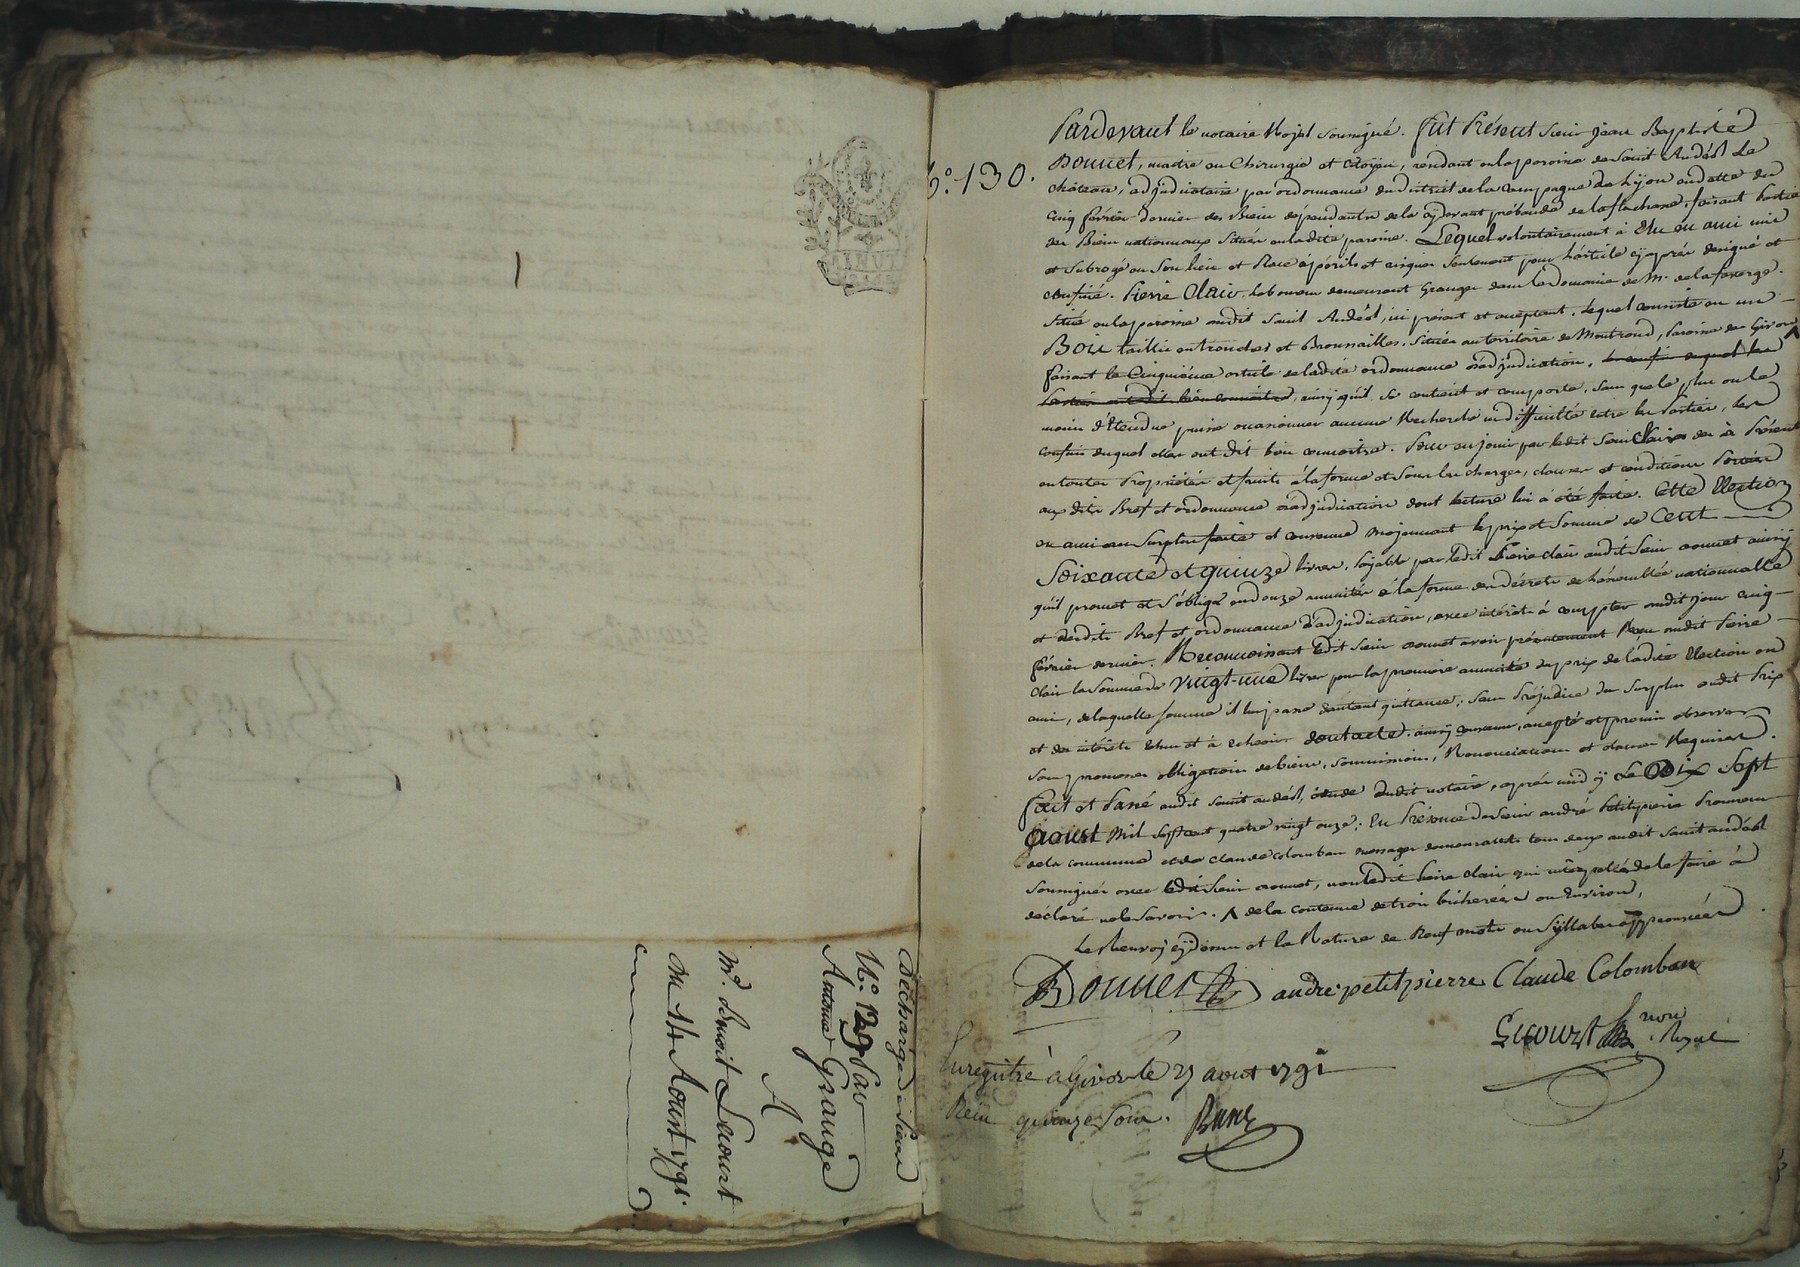 Décharge de Sieur
N.° 129 Par
Antoine Grange
A
Mᵉ. Benoit Lecourt
du 14 Aoust 1791.
N.° 130.
Pardevant le notaire Royal soussigné. Fut Présent sieur jean Baptiste
Donnet, maitre en Chirurgie et citoyen, résidant en la paroisse de Saint Andéol Le
château, adjudicataire par ordonnance du district de la campagne de Lyon en datte du
cinq février dernier des Biens dépendants de la cydevant prébande de laflachere, faisant Partie
des Biens nationnaux Situés en ladite paroisse. Lequel volontairement à élu en ami mis
et Subrogé en Son lieu et Place à périls et risques Seulement pour l'article cyaprés designé et
confiné. Pierre Clair laboureur demeurant Granger dans le Domaine de Mr. de lafaverge.
Situé en la paroisse audit Saint Andéol, ici présent et acceptant. Lequel consiste en un
Bois taillis en tronches et Broussailles, Situés au territoire de Montrond, Paroisse de Givors ∧
faisant le Cinquième article de ladite ordonnance d'adjudication, les confins duquel les
Parties ont dit bien connoitre, ainsy qu'il se contient et comporte, sans que le plus ou le
moins d'étendue puisse occasionner aucune Recherche ni difficulté entre les Parties, les
confins duquel elles ont dit bien connoitre. Pour en jouir par ledit Pierre Clair des à Présent
en toutes Propriétés et fruits à la forme et Sous les charges, clauses et conditions Portées
aux dits Bref et ordonnance d'adjudication dont lecture lui à été faite. Cette Election
en ami au Surplus faite et convenue moyennant le prix et Somme de Cent
Soixante et quinze livres, Payable par ledit Pierre clair audit Sieur donnet ainsy
qu'il promet et s'oblige en douze annuités à la forme des décrets de l'assemblée nationnalle
et desdits Bref et ordonnance d'adjudication, avec intérêts à compter audit jour cinq
février dernier. Reconnoissant ledit sieur donnet avoir présentement Reçu audit Pierre
Clair la Somme de vingt-une livres pour la premiere annuité du prix de ladite Election en
ami, de laquelle somme il luy passe d'autant quittance; Sans Préjudice du Surplus audit Prix
et des intérêts échus et à echeoir dont acte. ainsy convenu, accepté et promis observer
Sous promesses obligation de biens, Soumissions, Renonciations et clauses Requises.
fait et Passé audit Saint andéol, étude dudit notaire, après midy Le Dix Sept
Aoust mil Sept cent quatre vingt onze; En Présence de Sieur andré Petitpierre Procureur
de la commune et de claude colomban messager demeurants tous deux audit Saint andéol
Soussignés avec ledit Sieur donnet, non ledit Pierre clair qui interpellé de le faire à
déclaré ne le Savoir. ∧ de la contenue de trois bicherées ou environ,
Le Renvoy cydessus et la Rature de Neuf mots ou Syllabes approuvées.
Donnet andré petitpierre Claude Colomban
Lecourt nore. Royal
Enregistré à Givors le 27 aout 1791
Reçu quinze Sous.